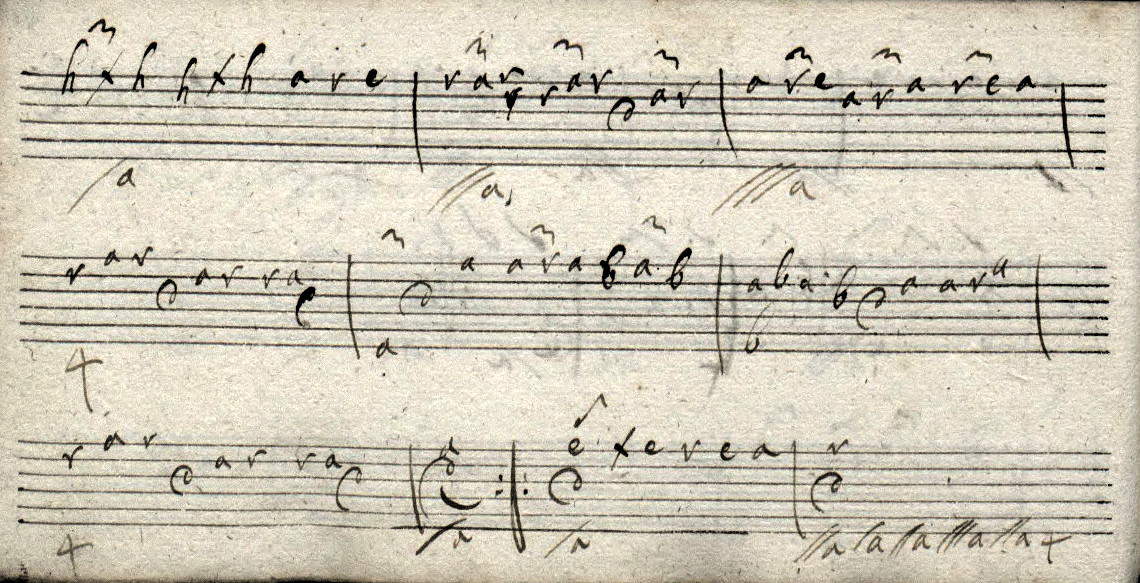 h x h h x h a r e | r a r r r a r d a r | a r e a r a r e a |
/a //a ///a
r a r d a r r a c | d a a r a b a b | a b a b d a a r a |
4 a b
r a r d a r r a c | a d :|: e f e r e a | r
4 /a d /a d //a /a //a ///a //a 4